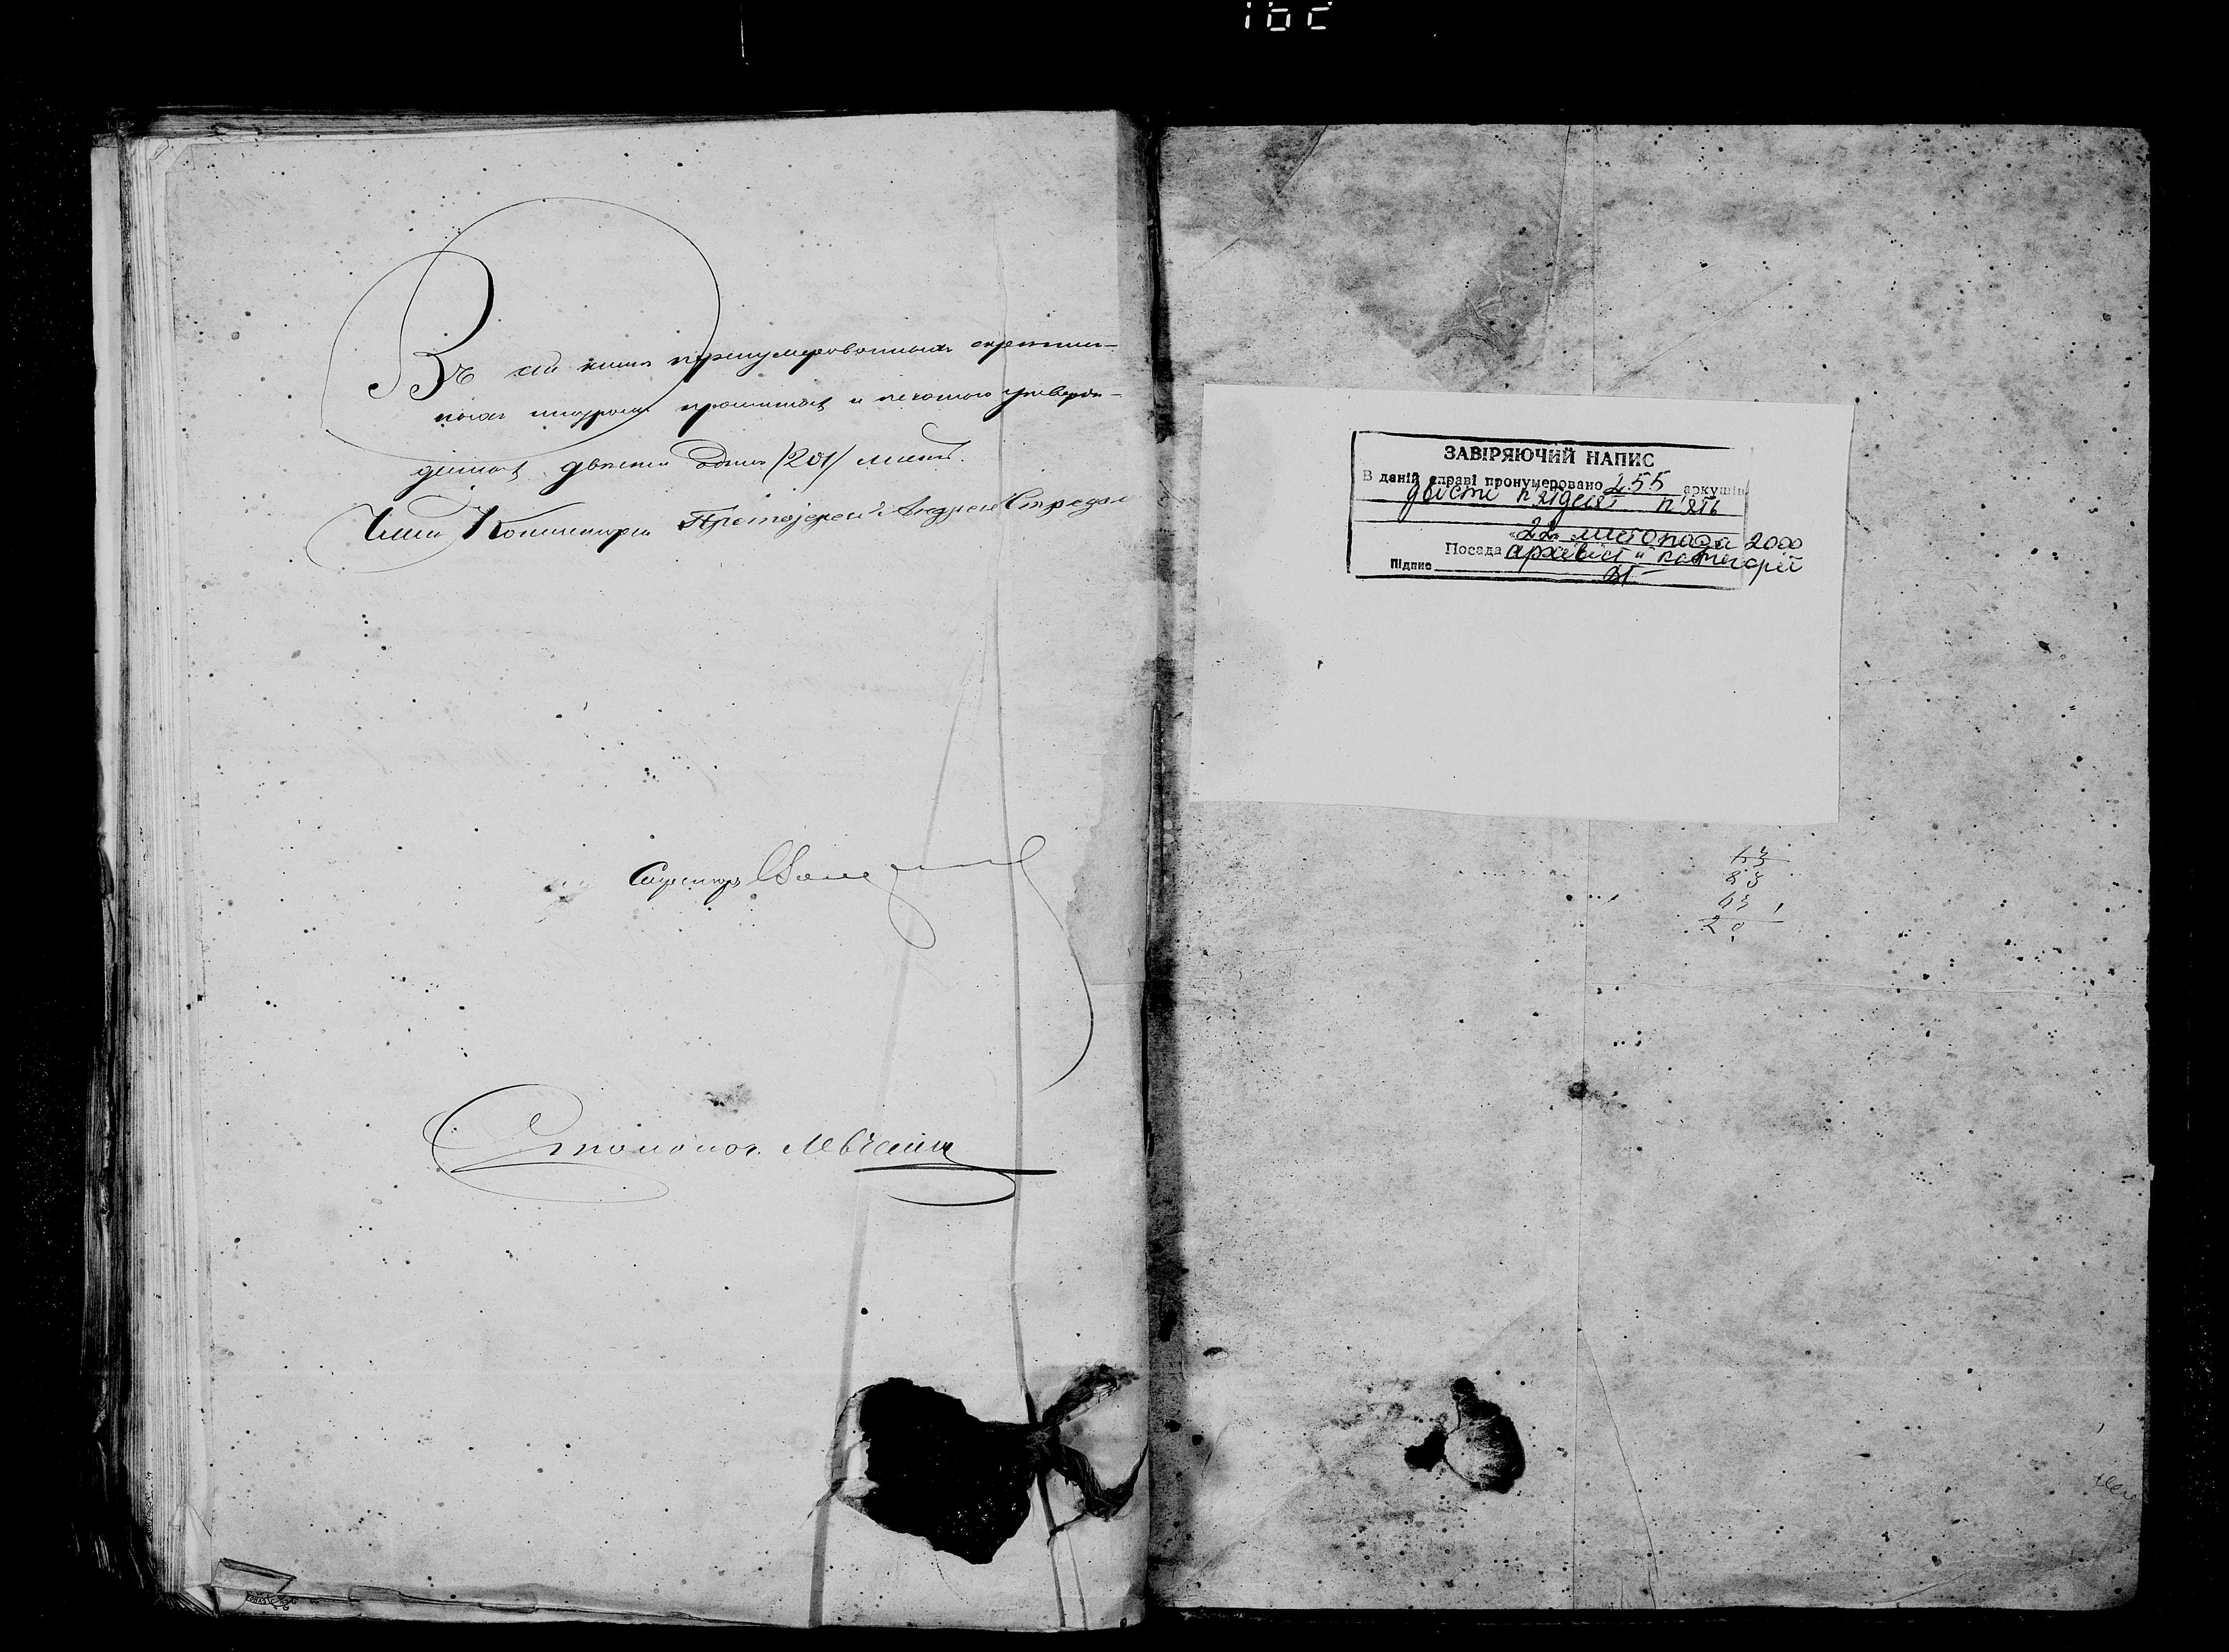 Въ сей книгѣ пронумерованныхъ скрѣплен-
ныхъ шнуромъ прошитыхъ и печатью утверж-
денныхъ двѣсти одинъ /201/ листъ.
Членъ Консисторіи Протоіерей Андрей
Секретарь
Столонач.
ЗАВІРЯЮЧИЙ НАПИС
В даній справі пронумеровано 255 аркушів
двісті п'ятдесят п'ять
"22" листопада 2000
Посада архівіст II категорії
Підпис
63
83
63
20